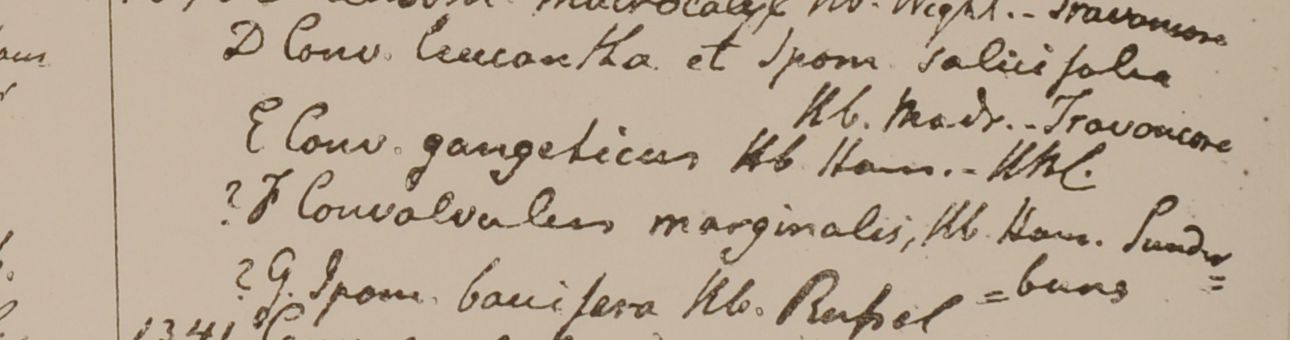 macrocalyx Hb. Wight. - Travancore
D Conv. leucantha et Ipom. salicifolia
Hb. Madr. - Travancore
E Conv. gangeticus Hb Ham. -
? F Convolvulus marginalis, Hb Ham. Sundr=
=buns
? G. Ipom. baccifera Hb. Russel
1341